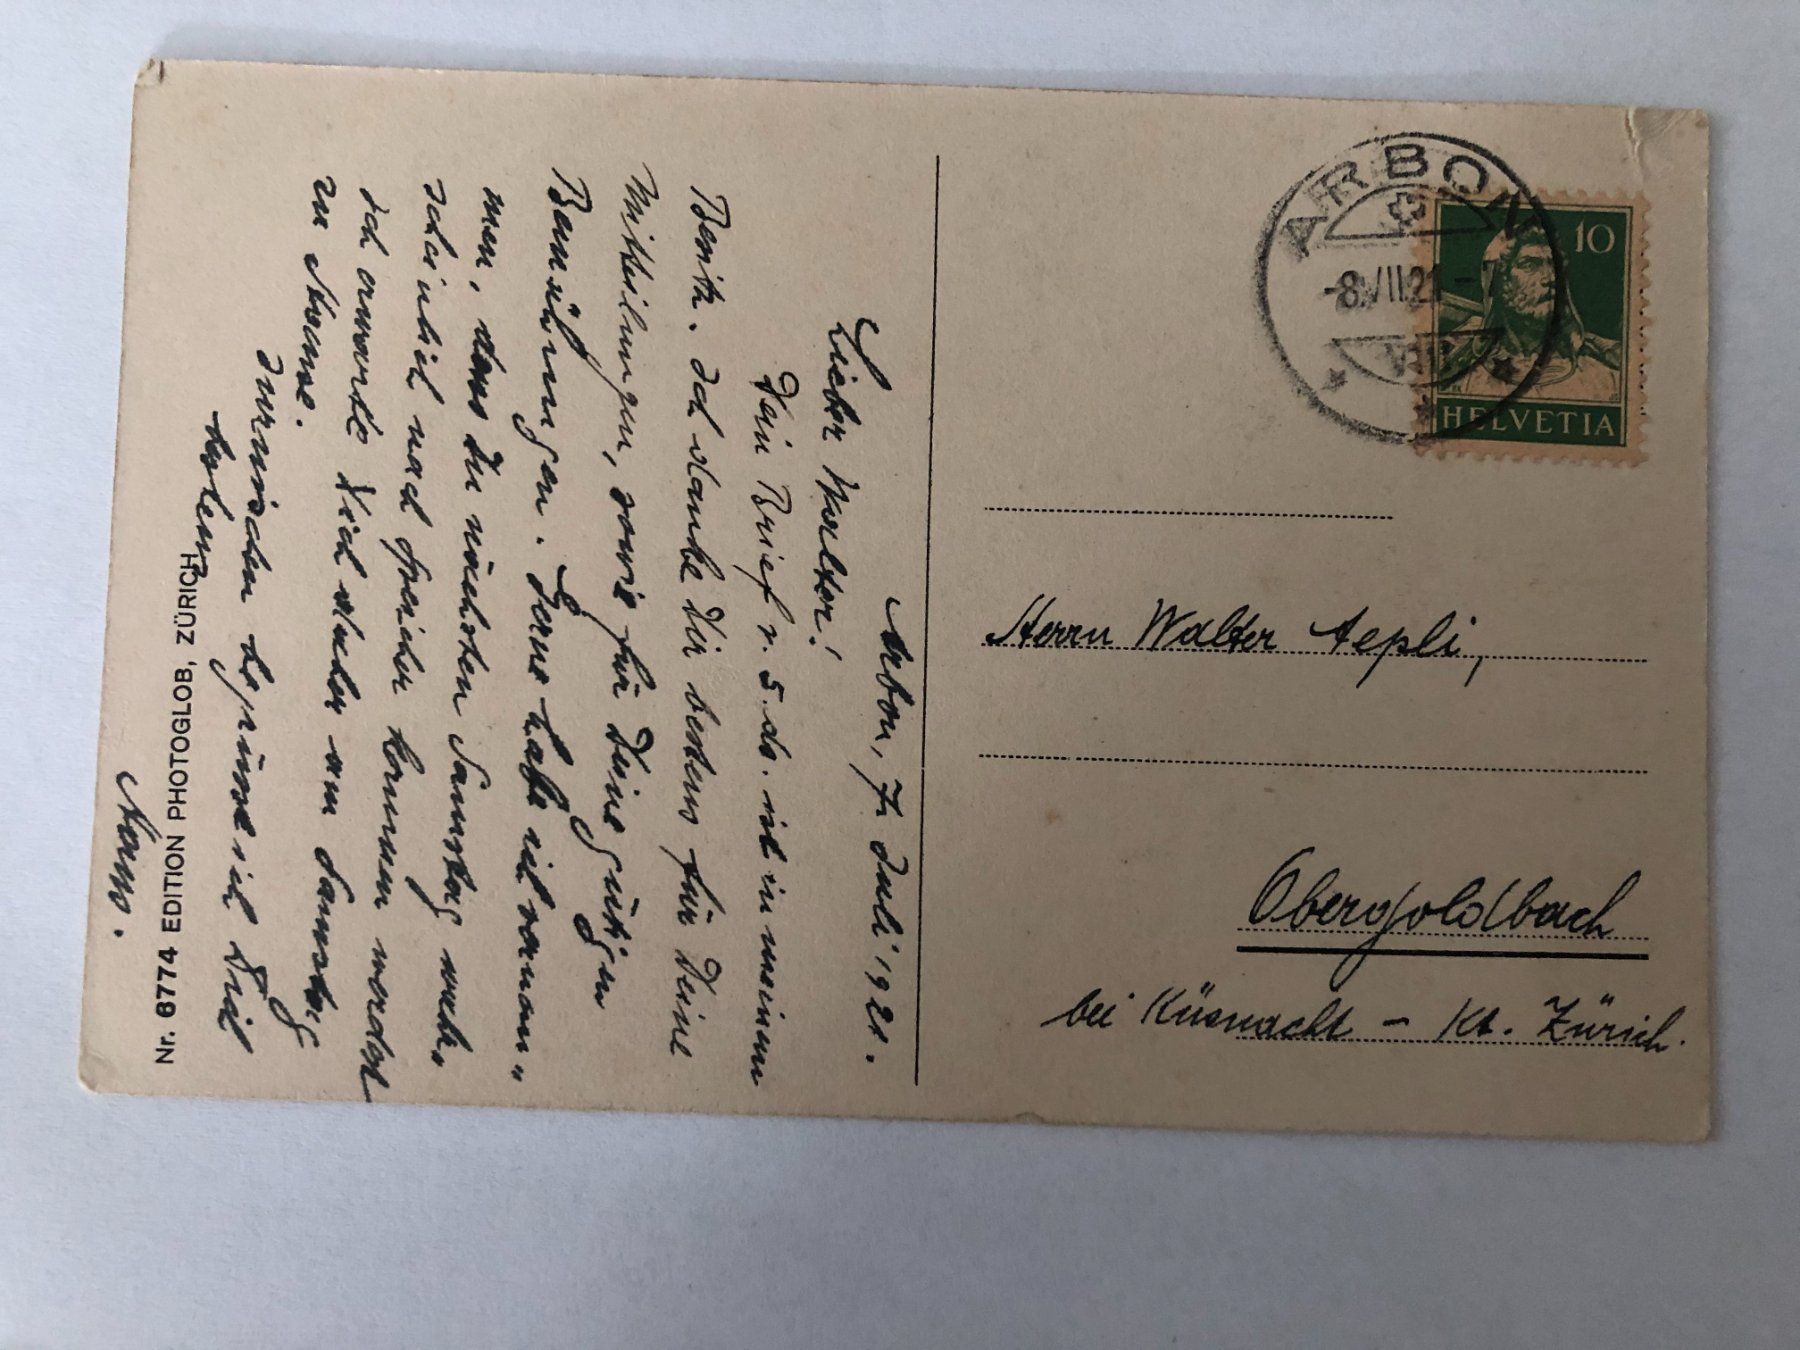 Arbon, 7. Juli 1921.
Lieber Walter!
Dein Brief v. 5. ds. ist in meinem
Besitz. Ich danke Dir bestens für Deine
Mitteilungen, sowie für Deine gütigen
Bemühungen. Gerne habe ich vernom„
men, dass Du nächsten Samstag wahr„
scheinlich nach Speicher kommen werdest
Ich erwarte Dich daher am Samstag
zu Hause.
Inzwischen begrüsse ich Dich
bestens
Hans.
Nr. 6774 EDITION PHOTOGLOB, ZÜRICH
ARBON
-8.VII.21.-7
HELVETIA
10
Herrn Walter Aepli,
Obergoldbach
bei Küsnacht - Kt. Zürich.